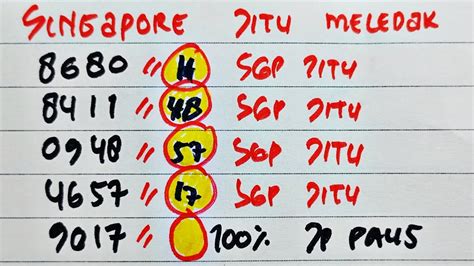 SINGAPORE JITU MELEDAK
8680 " 11 SGP JITU
8411 " 48 SGP JITU
0948 " 57 SGP JITU
4657 " 17 SGP JITU
9017 " 100% JP PAUS